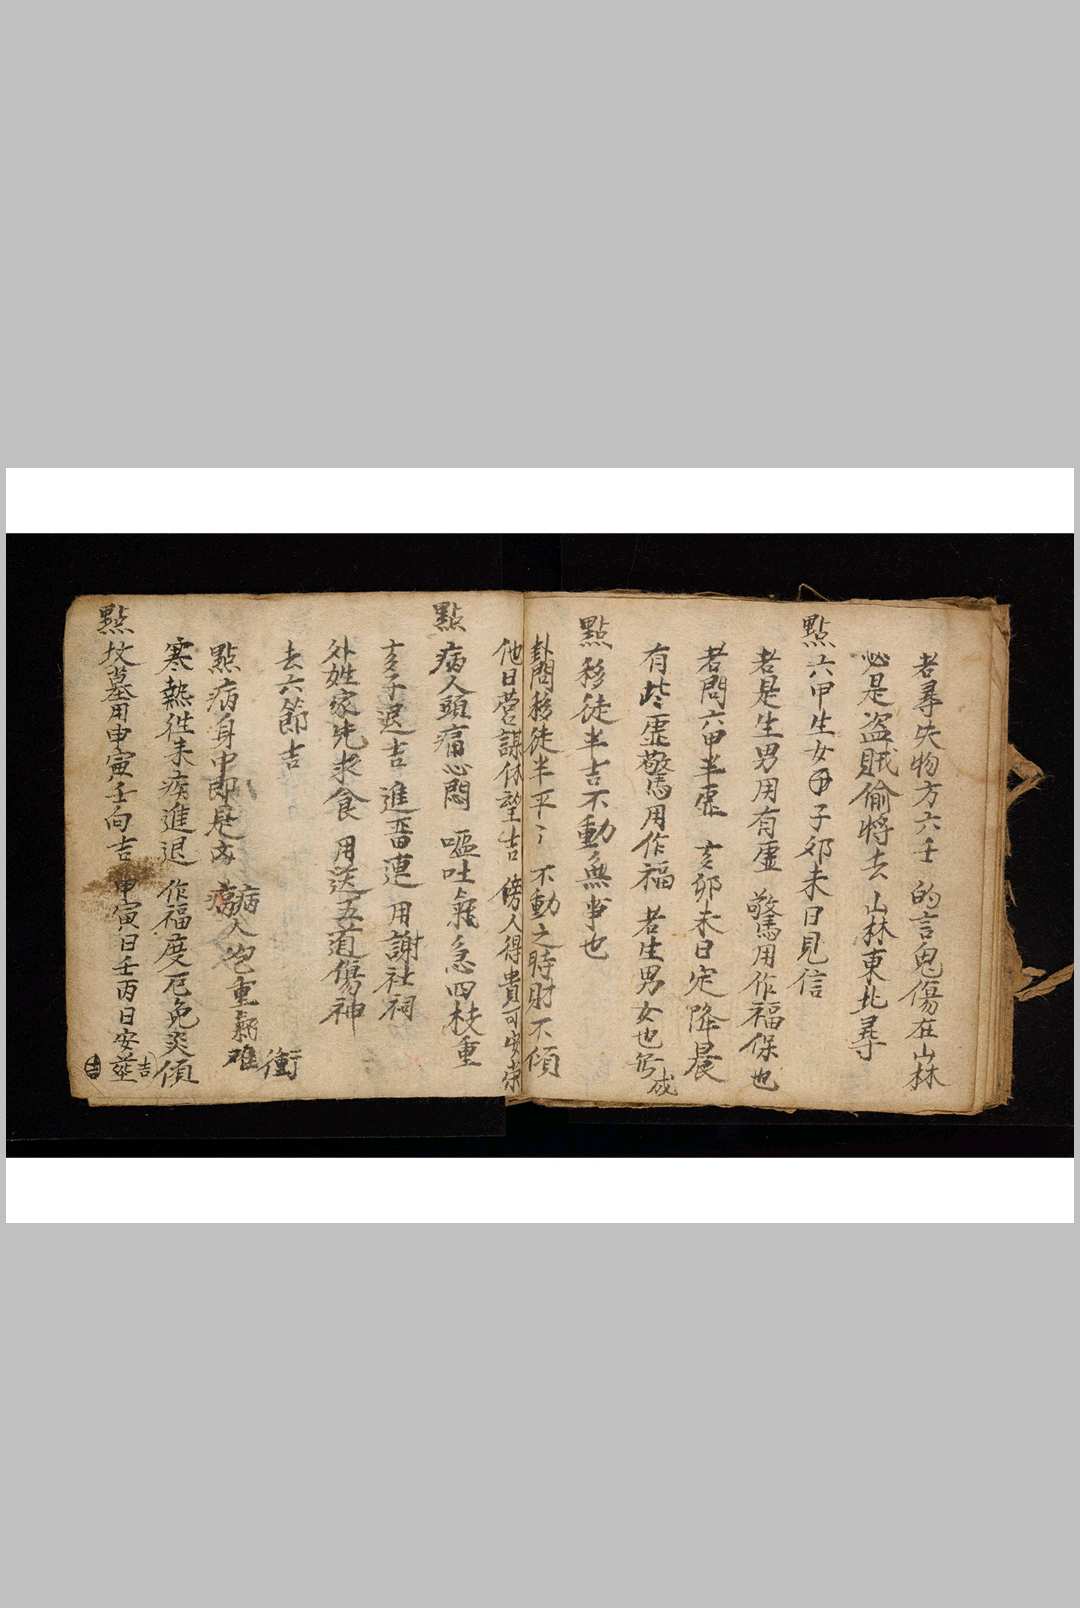 者尋失物方六壬 的言鬼傷在山林
必是盜賊偷將去 山林東北尋
點六甲生女 子卯未日見信
若是生男用有虛 驚用作福保也
若問六甲半虛 亥卯未日定降晨
有些虛驚用作福 若生男女也
點移徒半吉不動無事也
卦問移徒半平 不動之時財不傾
他日營謀休望吉 傍人得貴可安榮
點病人頭痛心悶 嘔吐氣急四枝重
亥子退吉 進 連 用謝社祠
外姓家先求食 用送五道傷神
去六節吉
點病身中即是 病人 重 难
寒熱往未疾進退 作福度厄免災傾
點坟墓用申寅壬向吉 甲寅日壬丙日安葬吉